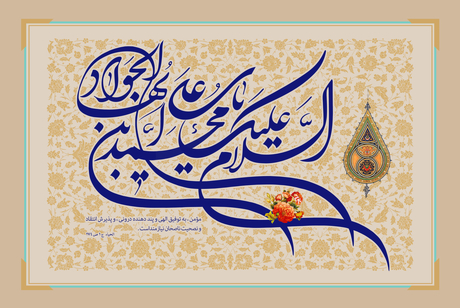 السلام علیک یا محمد بن علی ایها الجواد
مؤمن، به توفیق الهی و پند دهنده درونی، و پذیرش انتقاد
و نصحیت ناصحان نیازمند است.